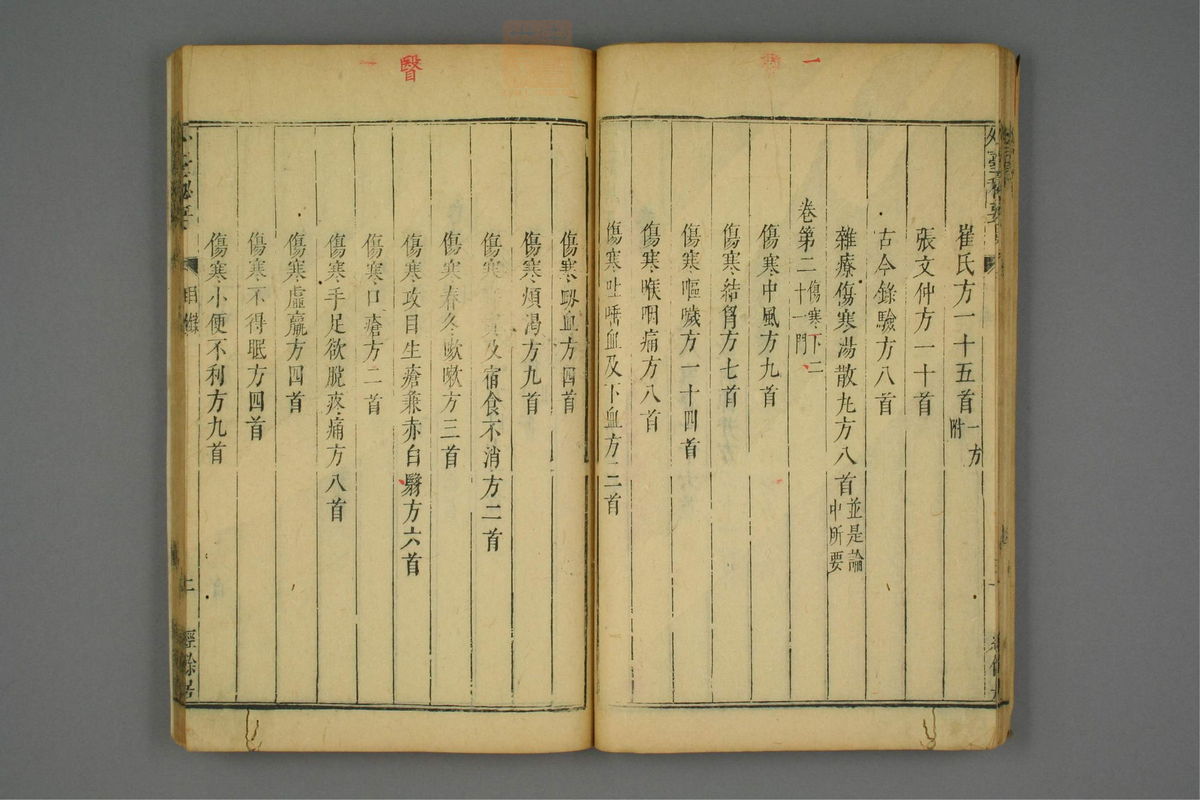 崔氏方一十五首一方附
張文仲方一十首
古今錄驗方八首
雜療傷寒湯散丸方八首並是論中所要
卷第二傷寒下二十一門
傷寒中風方九首
傷寒結胷方七首
傷寒嘔噦方一十四首
傷寒喉咽痛方八首
傷寒吐唾血及下血方三首
傷寒衂血方四首
傷寒煩渴方九首
傷寒及宿食不消方二首
傷寒春冬嗽方三首
傷寒攻目生瘡兼赤白翳方六首
傷寒口瘡方二首
傷寒手足欲脫疼痛方八首
傷寒虛羸方四首
傷寒不得眠方四首
傷寒小便不利方九首
一
醫
一
目錄
經餘居